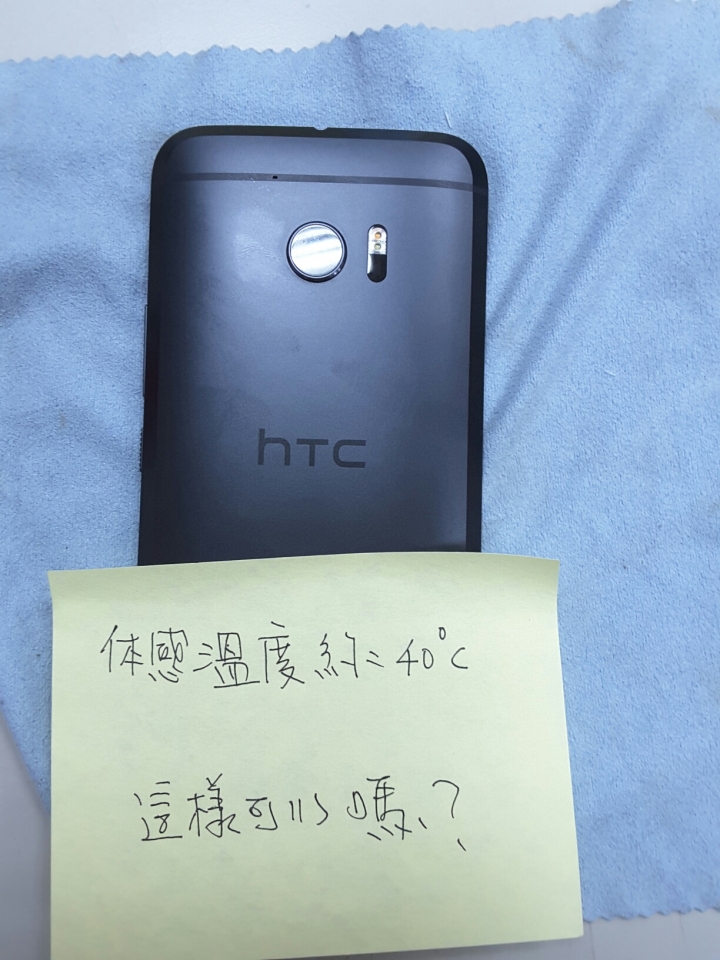 hTC
体感溫度約：40°C
這樣可以嗎？